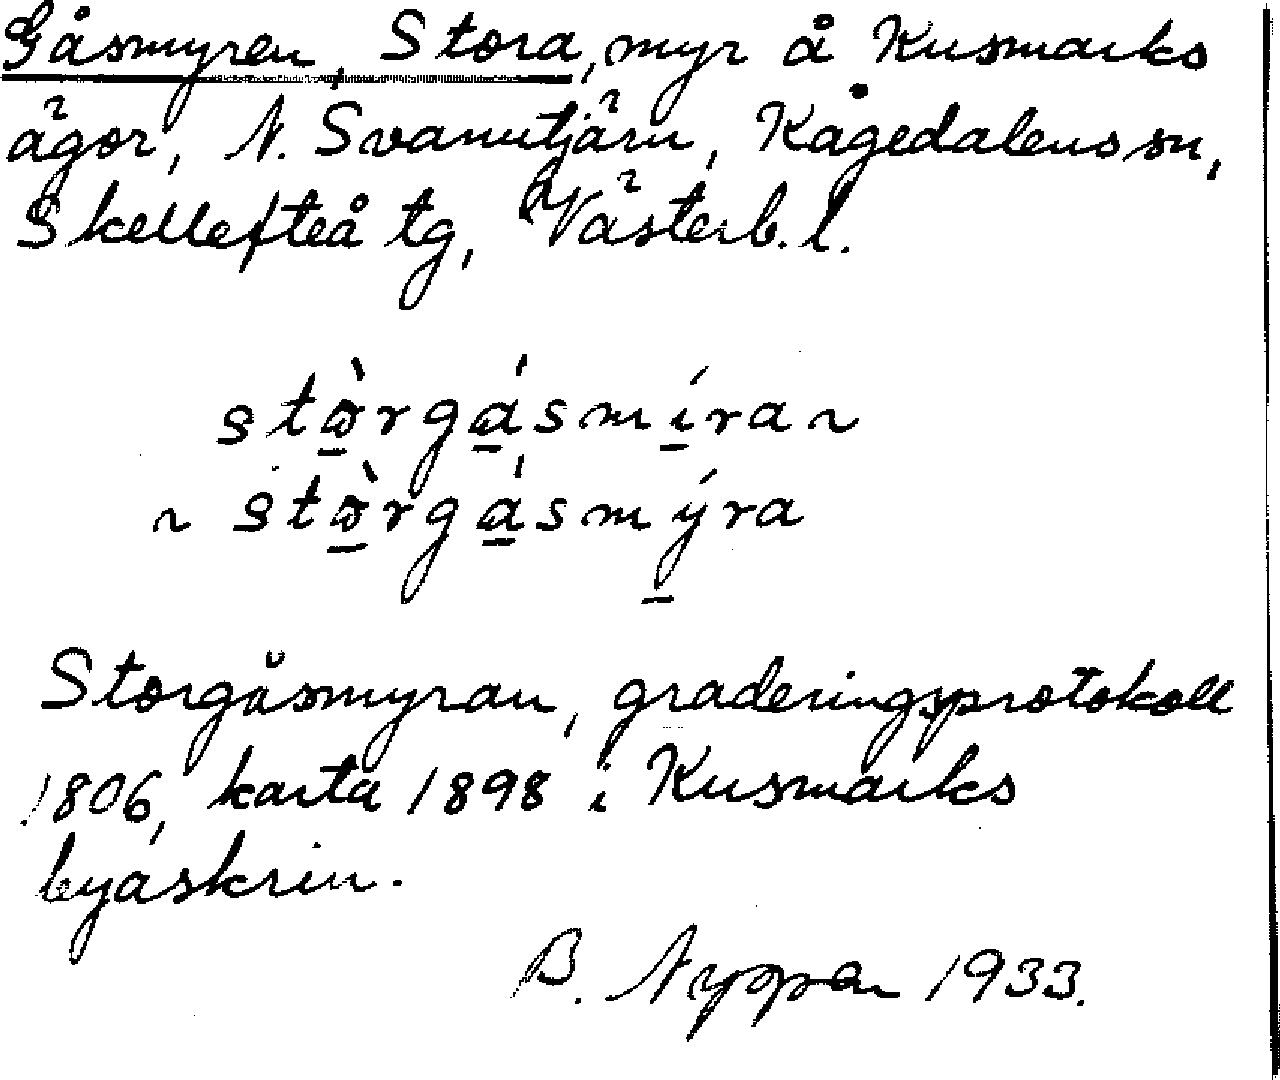 Gåsmyren, Stora, myr å Kusmarks
ägor, N. Svanutjärn, Kågedalens sn,
Skellefteå tg, Västerb. l.
stò̱rgá̱smí̱ra ~
~ stò̱rgá̱smý̱ra
Storgåsmyran, graderingsprotokoll
1806, karta 1898 i Kusmarks
byaskrin.
B. 1933.